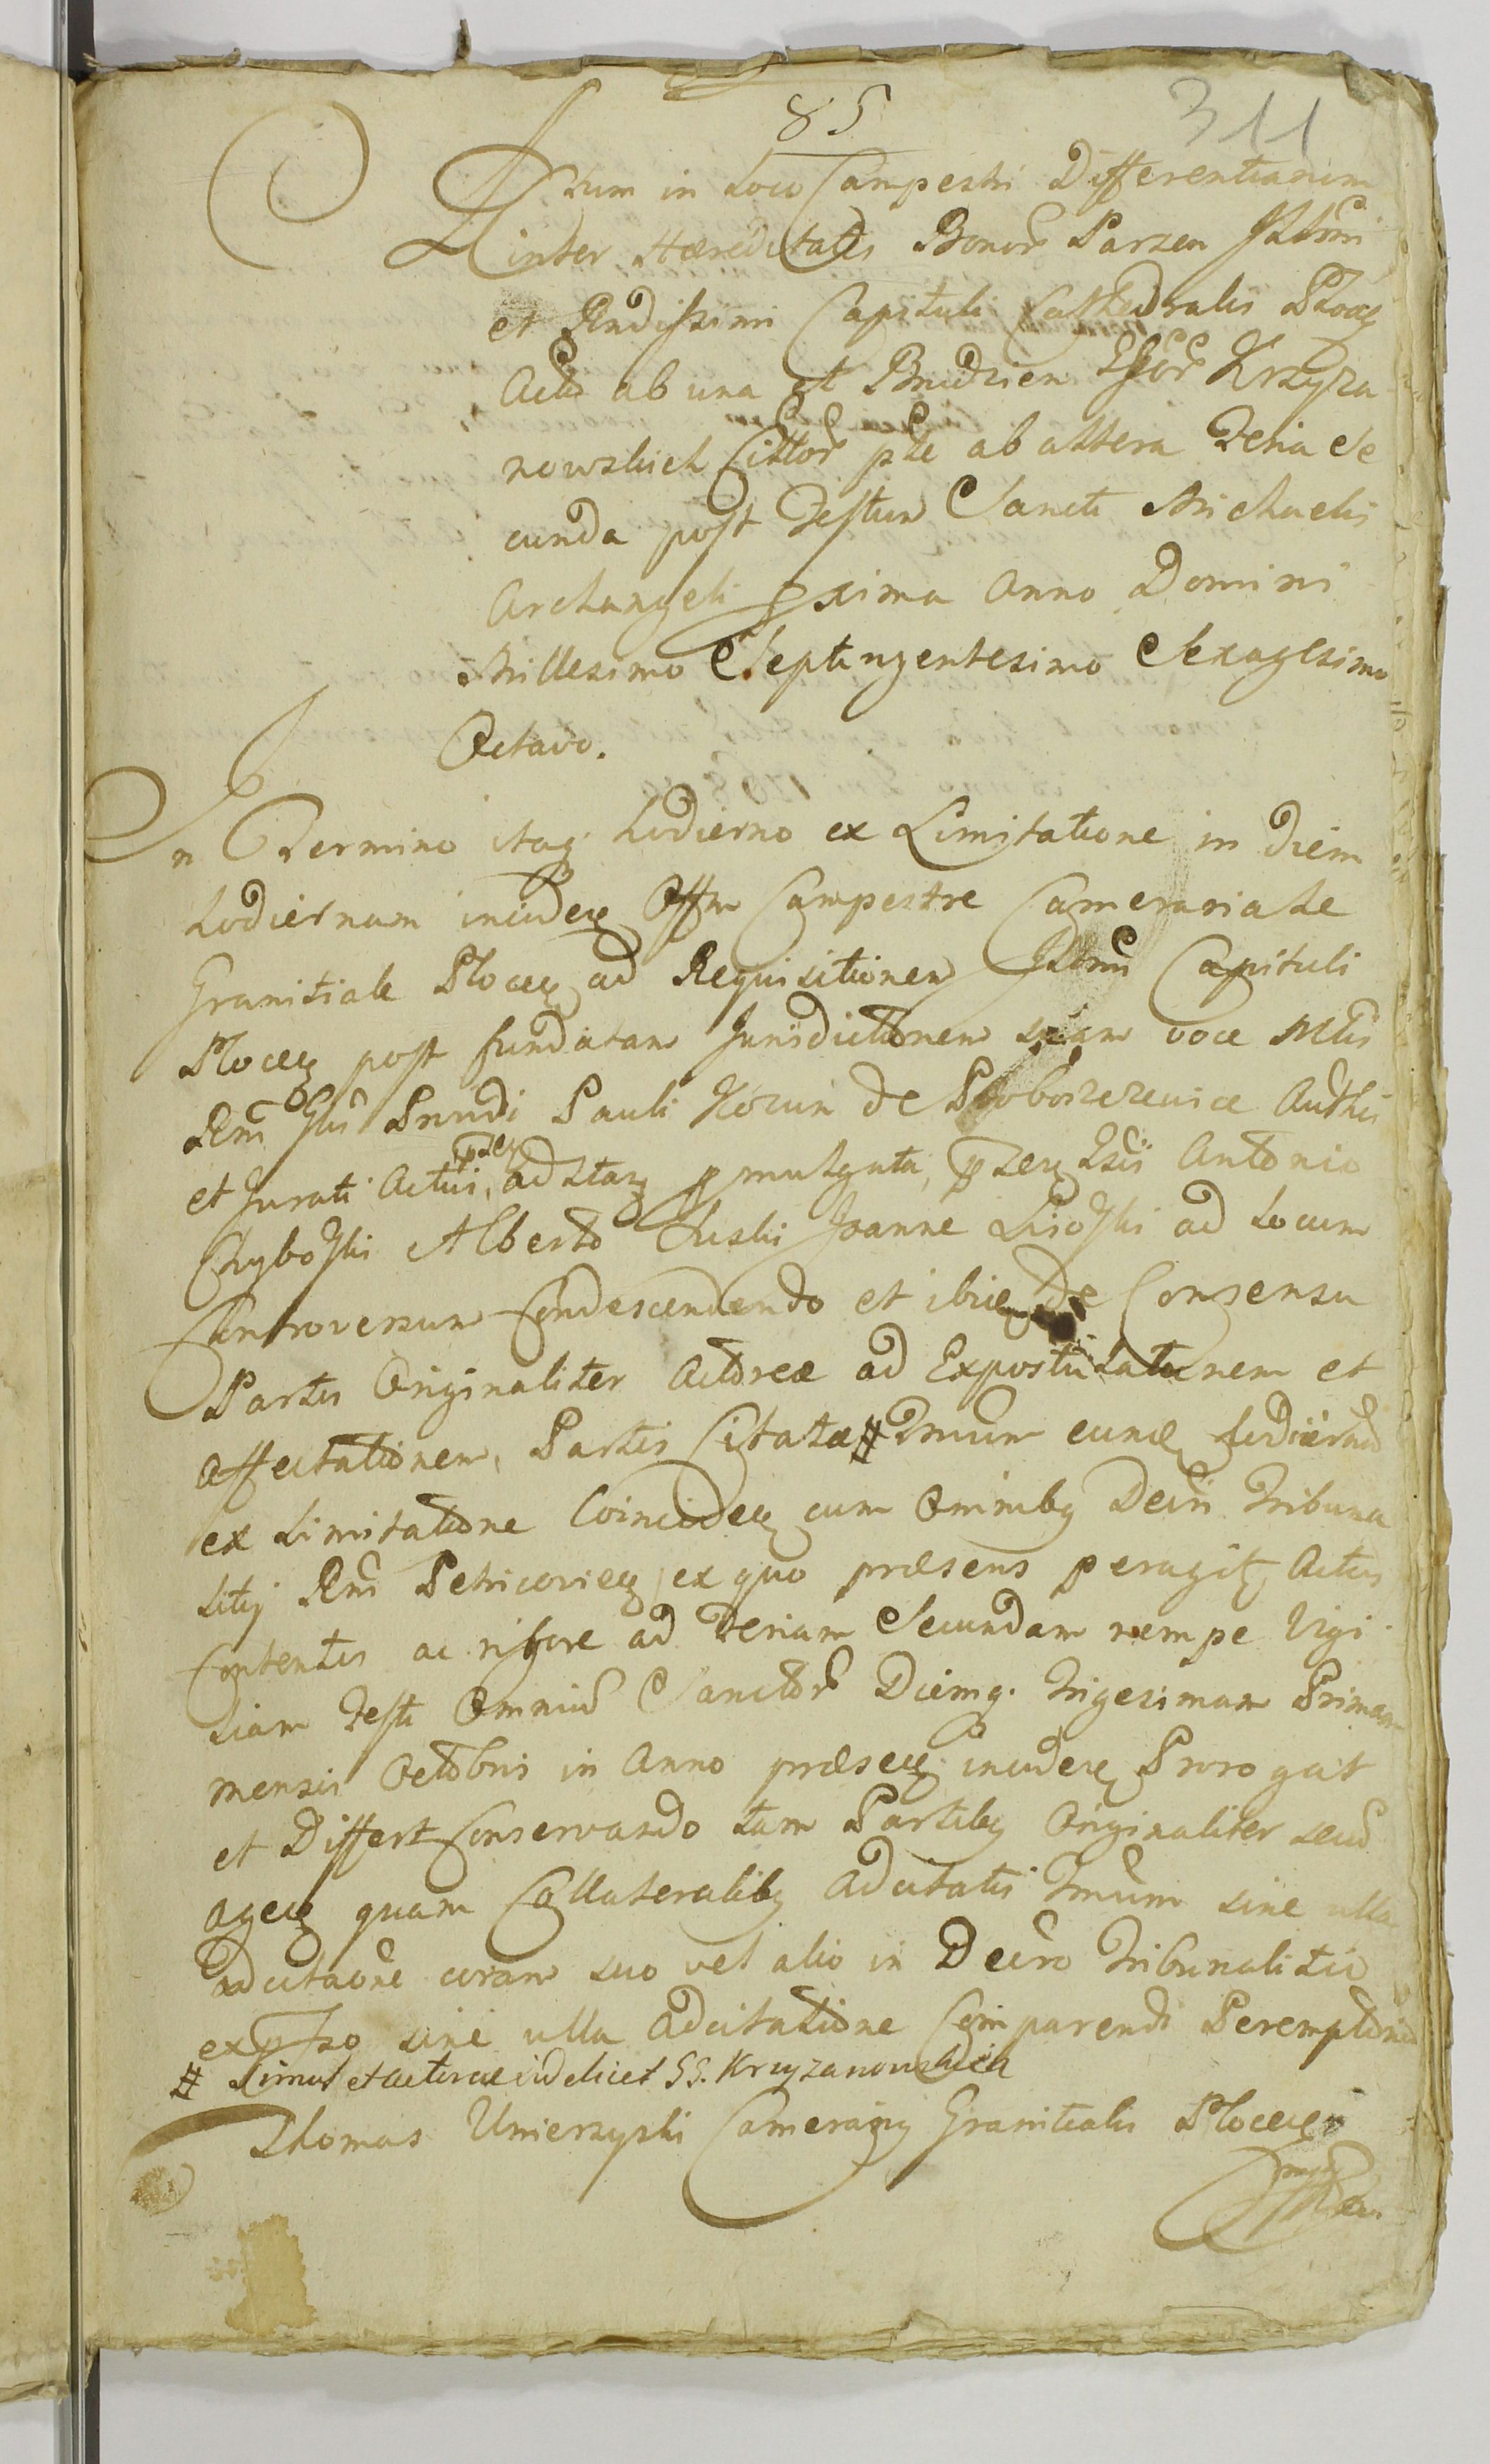 85
311
Actum in Loco Campestri Differentiarum
inter Hæreditates Bonor Parzen Illmi
et Rndissimi Capituli Cathedralis Plocen
Actor ab una et Brudzien Krzyza
nowskich Cittor pte ab altera Feria Se
cunda post Festum Sancti Michaelis
Archangeli pxima Anno Domini
Millesimo Septingentesimo Sexagesimo
Octavo.
In Termino itaq hodierno ex Limitatione in diem
hodiernum inciden Offm Campestre Camerariale
Granitiale Plocen ad Requisitionem Illmi Capituli
Plocen post fundatam Jurisdictionem suam voce Mlis
Rni Glis Prudi Pauli Kozun de Proboszczewice Authci
et Jurati Actui psen adstan pmulgata, psen Antonio
Chyboski Alberto Joanne Lisoski ad Locum
Controversum Condescendendo et ibidem de Consensu
Partis Originaliter Actoreæ ad Expostulationem et
affectationem, Partis Citatæ # Tmum eunde hodiernu
ex Limitatione Coinciden cum Omnibq Decri Tribuna
litij Rni Petricovien ex quo præsens peragit Actus
Contentis ac rigore ad Feriam Secundam nempe Vigi
liam Festi Omniu Sanctor Diemq Trigesimam Primam
mensis Octobris in Anno præsen inciden Prorogat
et Differt Conservando tam Partibq Originaliter secu
agen quam Collateralibq Adcitatis Tmum sine ulla
adcitaone coram suo vel alio in Decro Tribunalitio
expsso sine ulla adcitatione Comparendi Peremptoriu
# Simul et actoreæ videlicet SS. Krzyzanowskich
Thomas Umierzyski Camerarig Granitialis Plocen